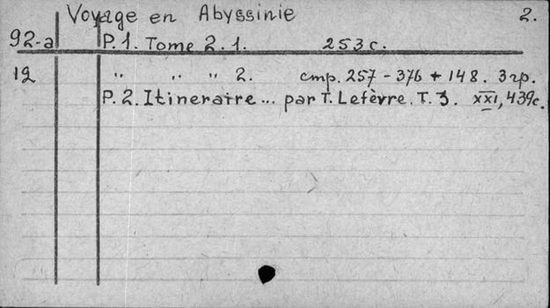 Voyage en Abyssinie 2.
92-a P. 1. Tome 2. 1. 253 с.
12 " " " 2. стр. 257 - 376 + 148. 3 гр.
P. 2. Itineraire ... par T. Lefèvre. T. 3. XXI, 439 с.